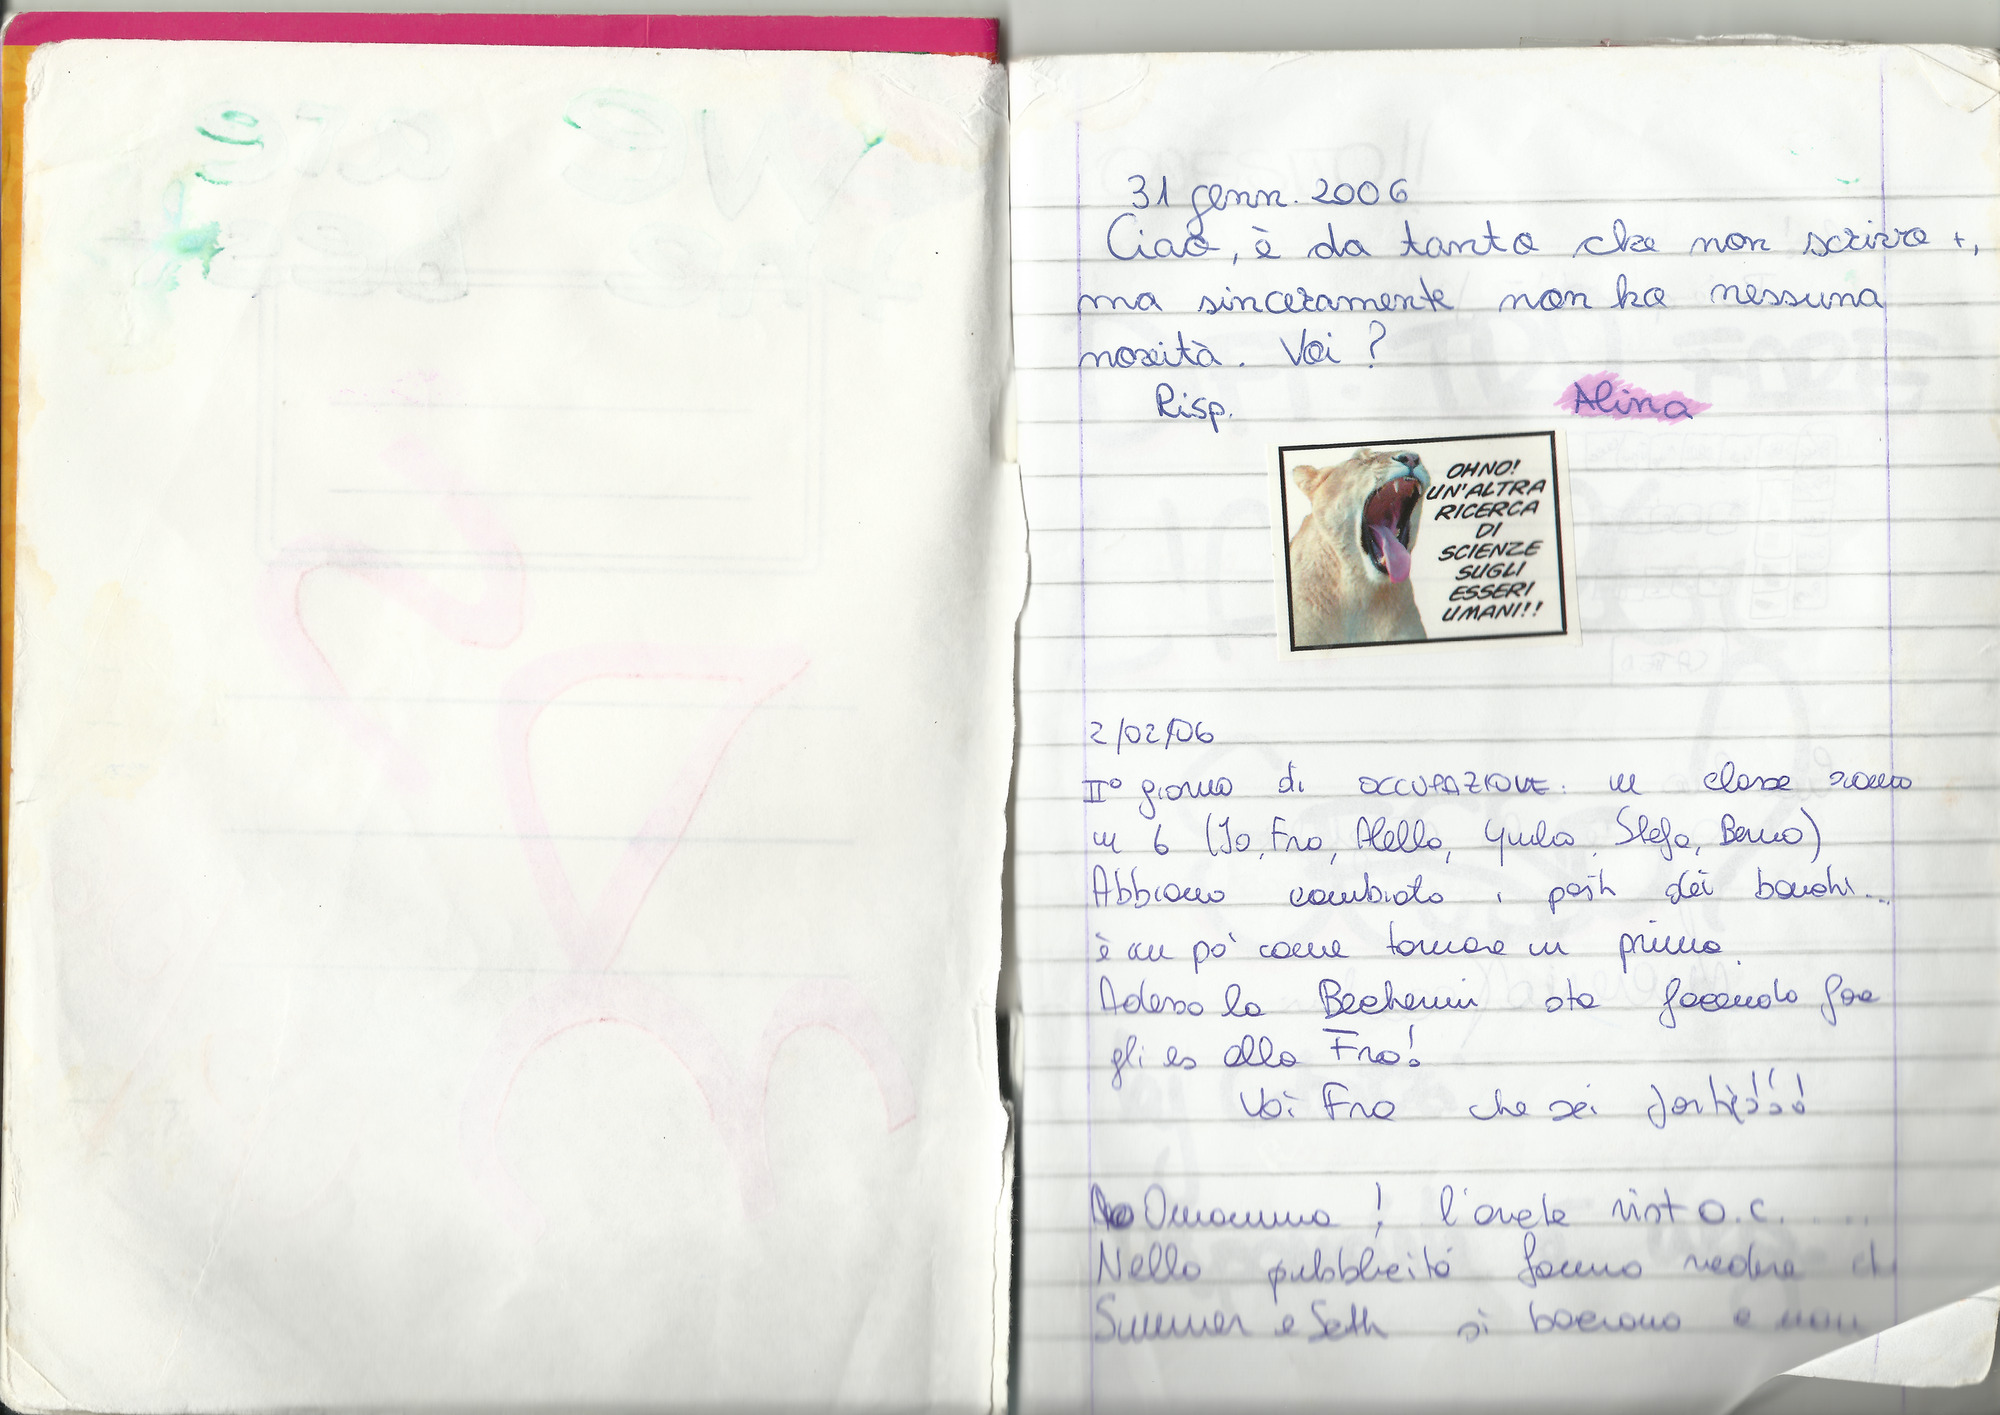 31 genn. 2006
Ciao, è da tanto che non scrivo +,
ma sinceramente non ho nessuna
novità. Voi?
Risp. Alina
OH NO!
UN'ALTRA
RICERCA
DI
SCIENZE
SUGLI
ESSERI
UMANI!!
2/02/06
II° giorno di OCCUPAZIONE: in classe siamo
in 6 (Io, Fra, Alella, Giulia, Stefa, Berna)
Abbiamo cambiato i posti dei banchi...
è un pò come tornare in prima.
Adesso la Becherini sta facendo fare
gli es alla Fra!
Vai Fra che sei forte!!!
Omamma! l'avete visto O.C. .....
Nella pubblicità fanno vedere ch
Summer e Seth si baciano e non